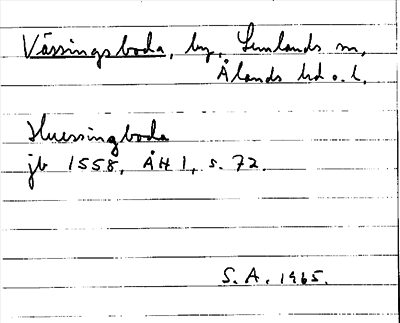 Vässingsboda, by, Lemlands sn,
Ålands hd o. l.
Huessingboda
jb 1558, ÅH 1, s. 72.
S.A. 1965.